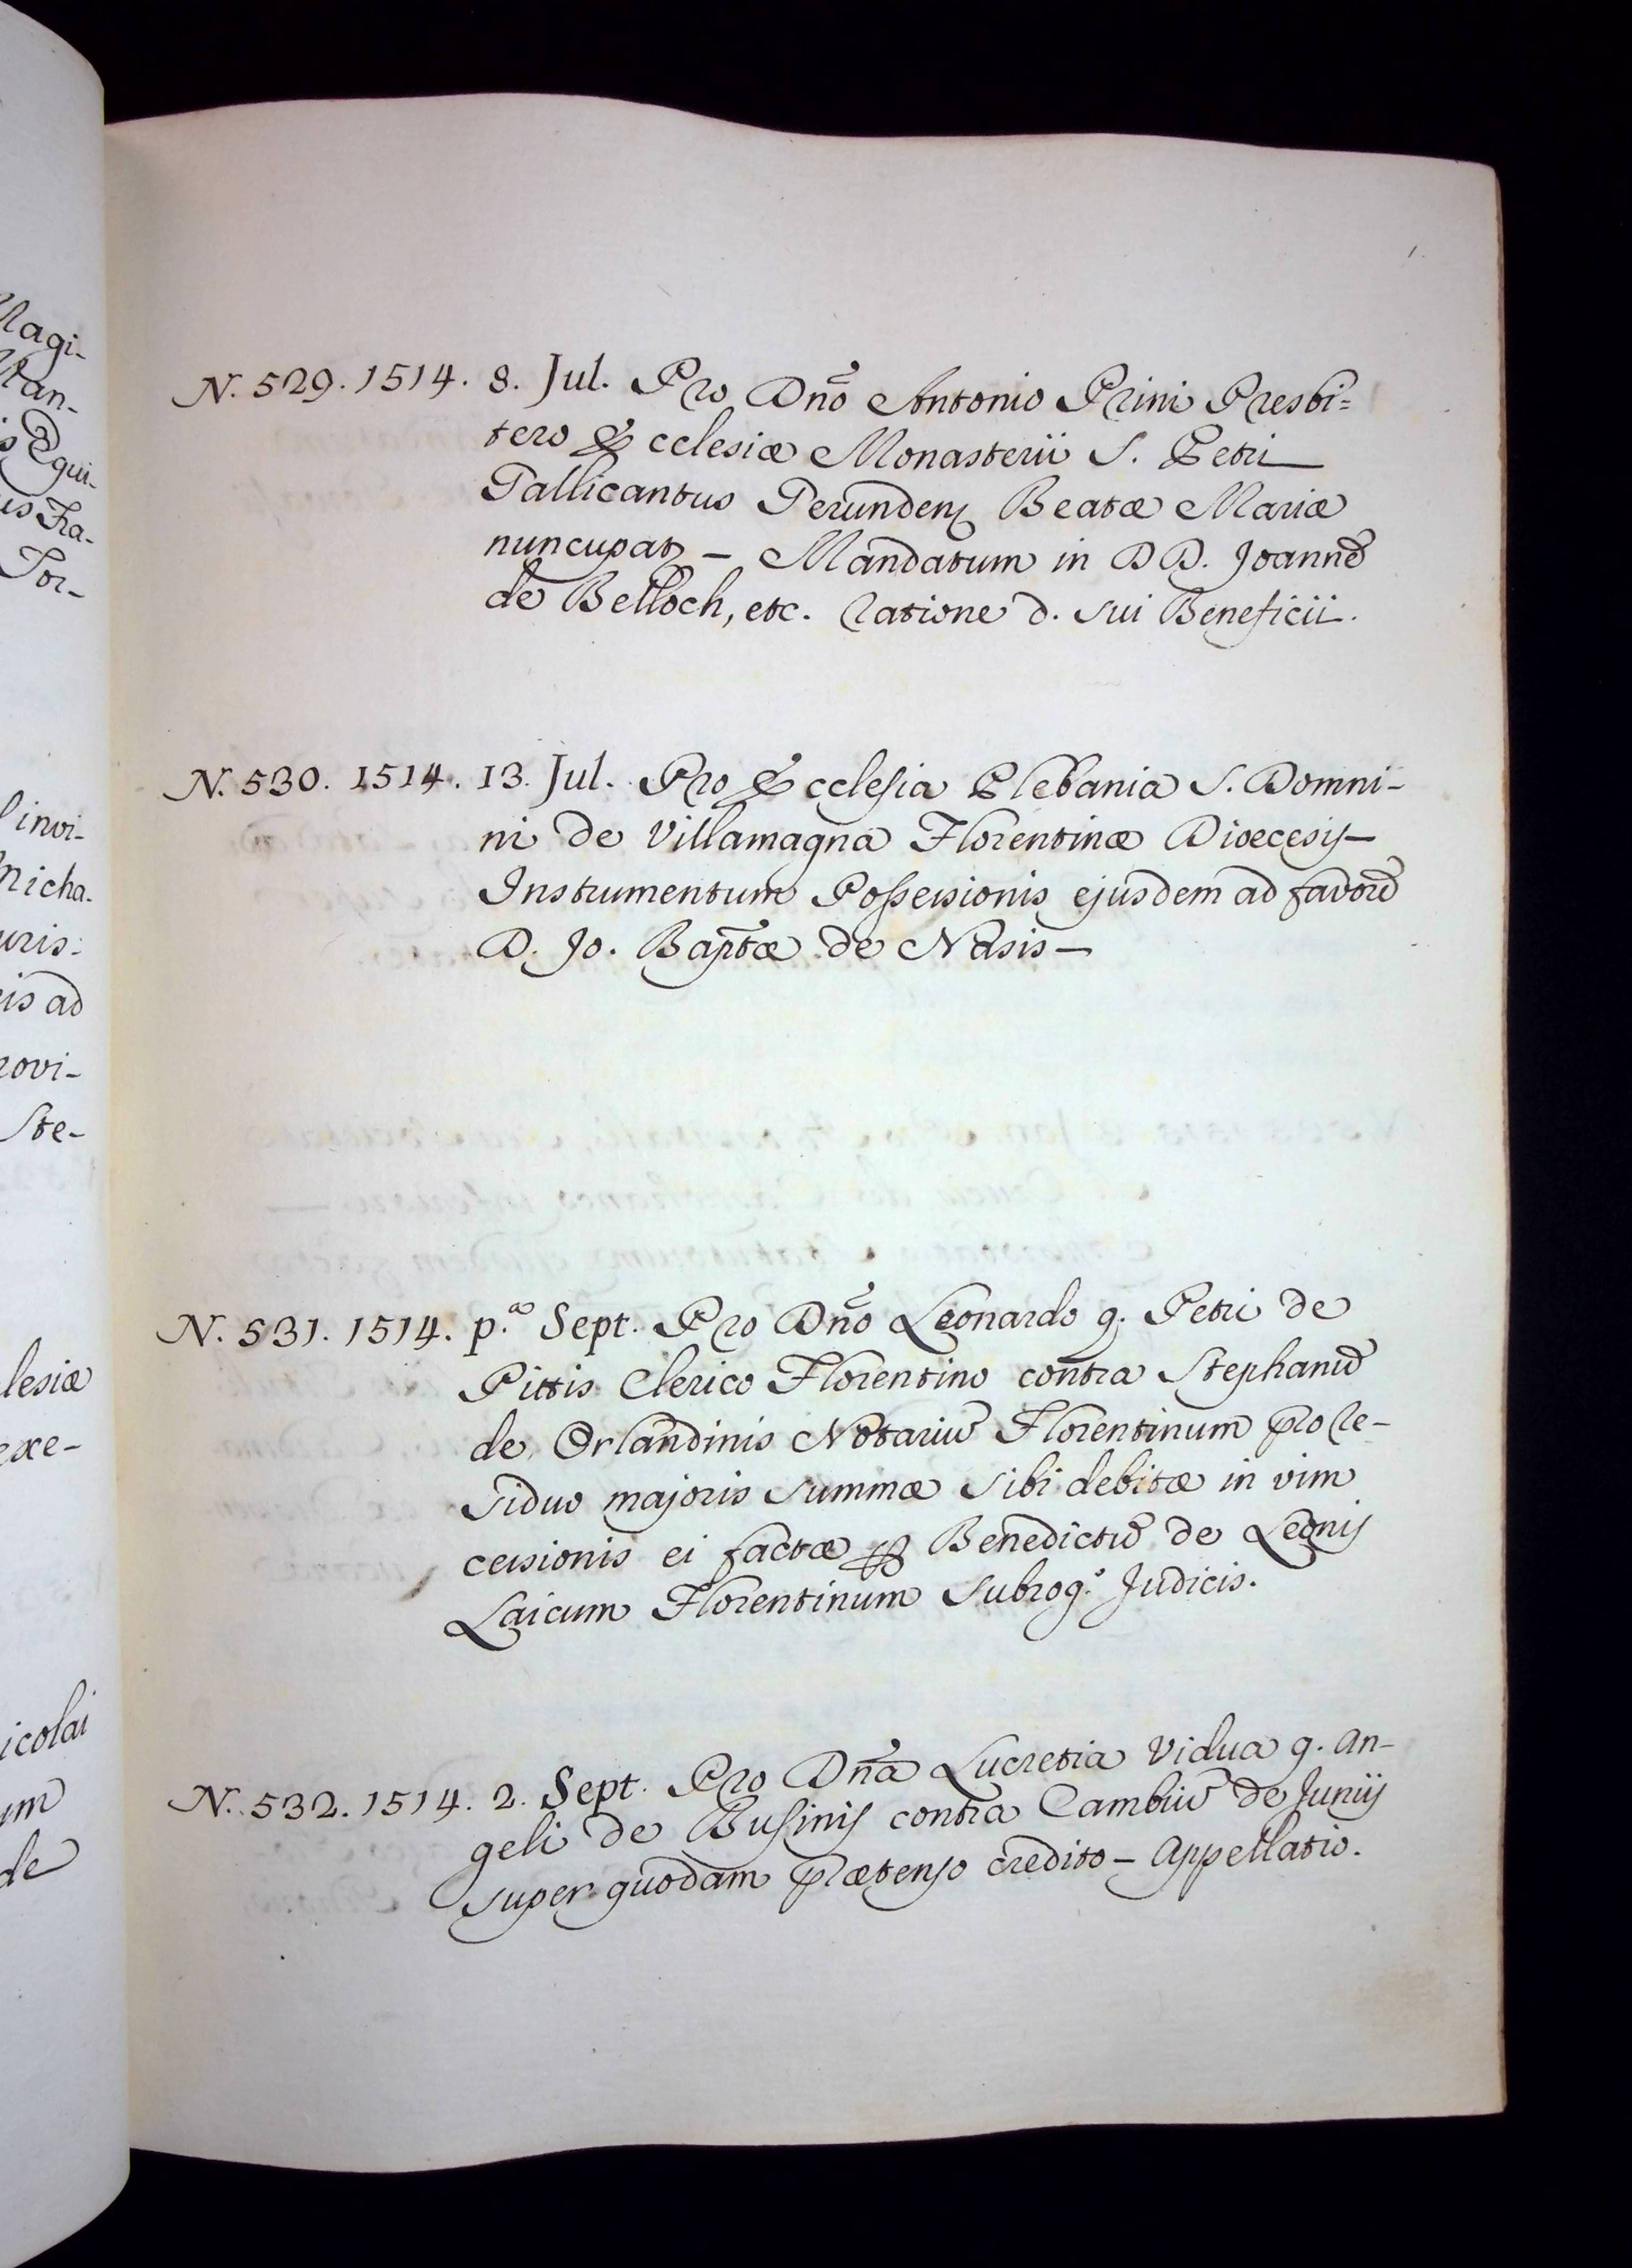 Magi-
tan-
is Equi-
us Fra-
Tor-
invi-
Micha-
uris:
eis ad
rovi-
Ste-
lesiæ
exe-
icolai
um
de
N. 529. 1514. 8. Jul. Pro Dño Antonio Prini Presbi=
tero Ecclesiæ Monasterii S. Petri
Gallicantus Gerunden, Beatæ Mariæ
nuncupat, – Mandatum in DD. Joanne̅
de Belloch, etc. ratione d. sui Beneficii.
N. 530. 1514. 13. Jul. Pro Ecclesia Plebania S. Domni-
ni de Villamagna Florentinæ Dioecesis –
Instrumentum Possessionis ejusdem ad favore̅
D. Jo. Bap̅tæ de Nasis –
N. 531. 1514. p.ª Sept. Pro Dño Leonardo q. Petri de
Pittis Clerico Florentino contra Stephanu̅
de Orlandinis Notariu̅ Florentinum pro re-
siduo majoris summæ sibi debitæ in vim
cessionis ei factæ ꝑ Benedictu̅ de Leonis
Laicum Florentinum Subrog.s Judicis.
N. 532. 1514. 2. Sept. Pro Dña Lucretia Vidua q. An-
geli de Businis contra Cambiu̅ de Juniis
super quodam prætenso credito – Appellatio.